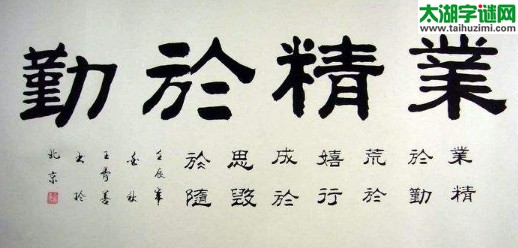 太湖字谜网
www.taihuzimi.com
業精於勤
業精
於勤
荒於
嬉行
成於
思毀
於隨
壬辰年
金秋
王善
书於
北京